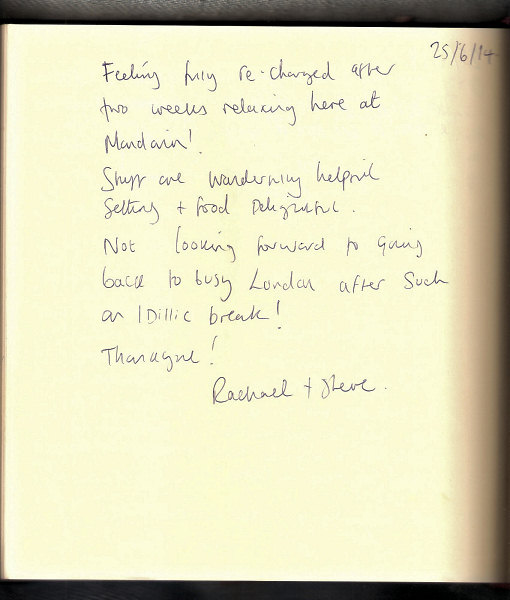 25/6/14
Feeling fully re-charged after
two weeks relaxing here at
Mandarin!
Staff are wonderfully helpful
Setting + food Delightful.
Not looking forward to going
back to busy London after such
an IDillic break!
Thankyou!
Rachael + Steve.